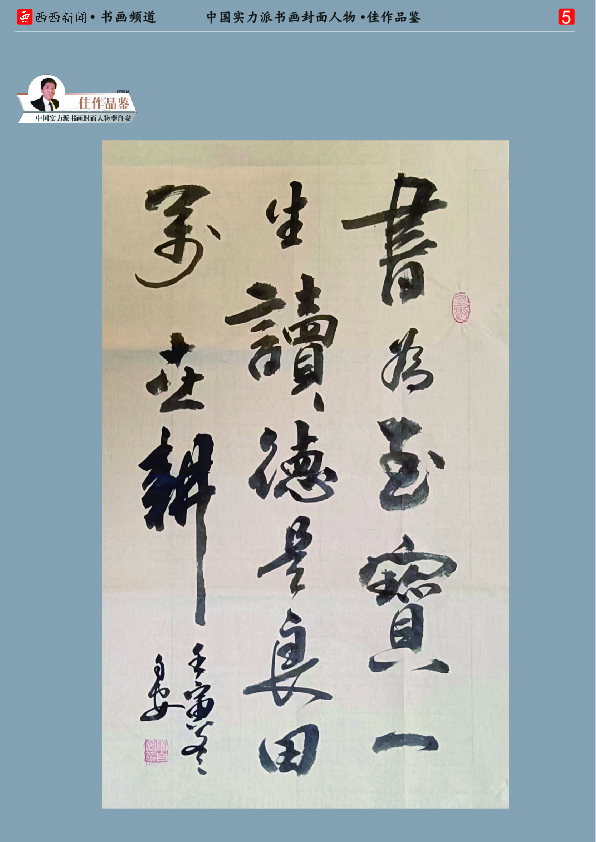 西西新闻·书画频道 中国实力派书画封面人物·佳作品鉴 5
佳作品鉴
中国实力派书画封面人物李自安
書為至寶一
生讀德是良田
萬世耕
壬寅冬
自安